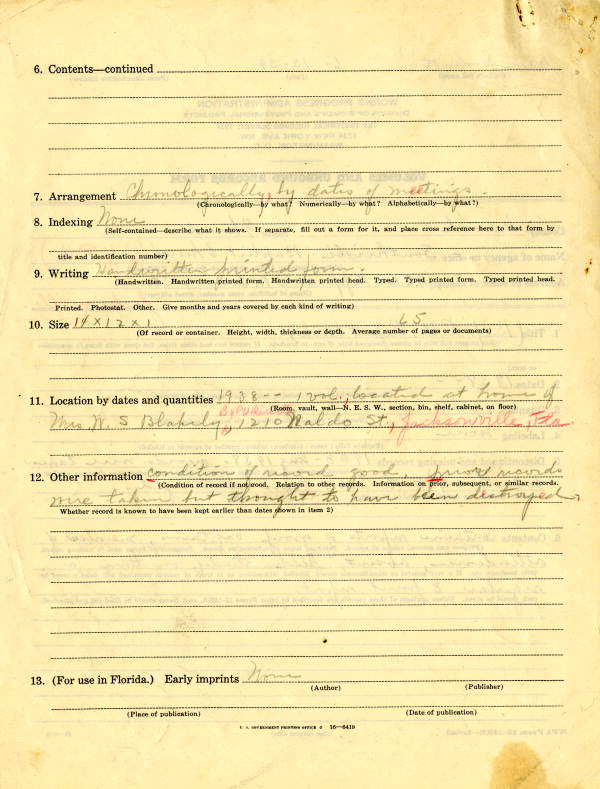 6. Contents—continued
7. Arrangement Chronologically, by dates of meetings.
(Chronologically—by what? Numerically—by what? Alphabetically—by what?)
8. Indexing None
(Self-contained—describe what it shows. If separate, fill out a form for it, and place cross reference here to that form by
title and identification number)
9. Writing Handwritten printed form.
(Handwritten. Handwritten printed form. Handwritten printed head. Typed. Typed printed form. Typed printed head.
Printed. Photostat. Other. Give months and years covered by each kind of writing)
10. Size 14 x 12 x 1 65
(Of record or container. Height, width, thickness or depth. Average number of pages or documents)
11. Location by dates and quantities 1938-- 1 vol., located at home of
(Room, vault, wall—N. E. S. W., section, bin, shelf, cabinet, on floor)
Mrs. W. S Blakely, 1210 Naldo St., Jacksonville, Fla
12. Other information condition of record good. prior records
(Condition of record if not good. Relation to other records. Information on prior, subsequent, or similar records.
were taken but thought to have been destroyed.
Whether record is known to have been kept earlier than dates shown in item 2)
13. (For use in Florida.) Early imprints None
(Author) (Publisher)
(Place of publication) (Date of publication)
U. S. GOVERNMENT PRINTING OFFICE 16—6419